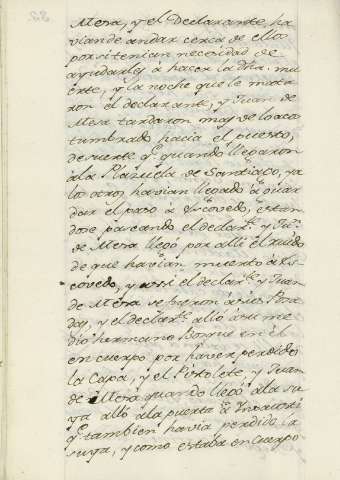 Mesa, y el Declarante, ha
vian de andar cerca de ellos
por si tenian necesidad de
ayudarles à hacer la dha. mu
erte, y la noche que le mata
ron el declarante, y Juan de
Mesa tardaron mas de lo acos
tumbrado hacia el puesto,
de suerte qe. quando llegaron
à la Plazuela de Santiago, ya
los otros havian llegado à aguar
dar el paso à Escovedo, estan
dose paseando el declarte. y Jun.
de Mesa llegó por alli el ruido
de que havian muerto à Es
covedo, y assi el declarte. y Juan
de Mesa se fueron à sus Posa
das, y el declarte. alló à su me
dio hermano Bosque en él
en cuerpo por haver perdido
la Capa, y el Pistolete, y Juan
de Mesa quando llegó à la su
ya alló à la puerta à Insausti
qe. tambien havia perdido la
suya, y como estaba en cuerpo